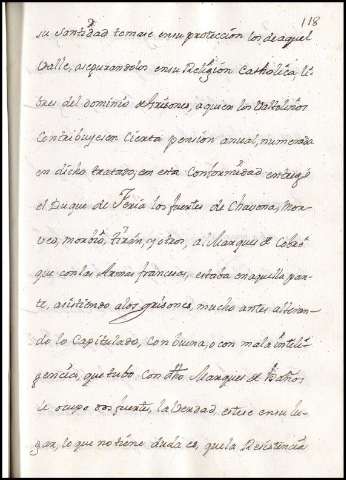 118
su Santidad tomase en su proteccion los de aquel
Valle, asegurandolos en su Religion Catholica li-
bres del dominio de Grisones, a quien los Valtolinos
Contribuyesen cierta pension anual, numerada
en dicho tratado, en esta Conformidad entregó
el Duque de Feria los fuertes de Chavena,
Morbio, Tirán, y otros, al Marques de
que con las Armas francesas, estaba en aquella par-
te, asistiendo a los grisones, mucho antes alteran-
do lo Capitulado, Con buena, o con mala inteli-
gencia, que tubo Con dho Marques de
le ocupo dos fuertes, la Verdad, estese en su lu-
gar, lo que no tiene duda es, que la Resistencia